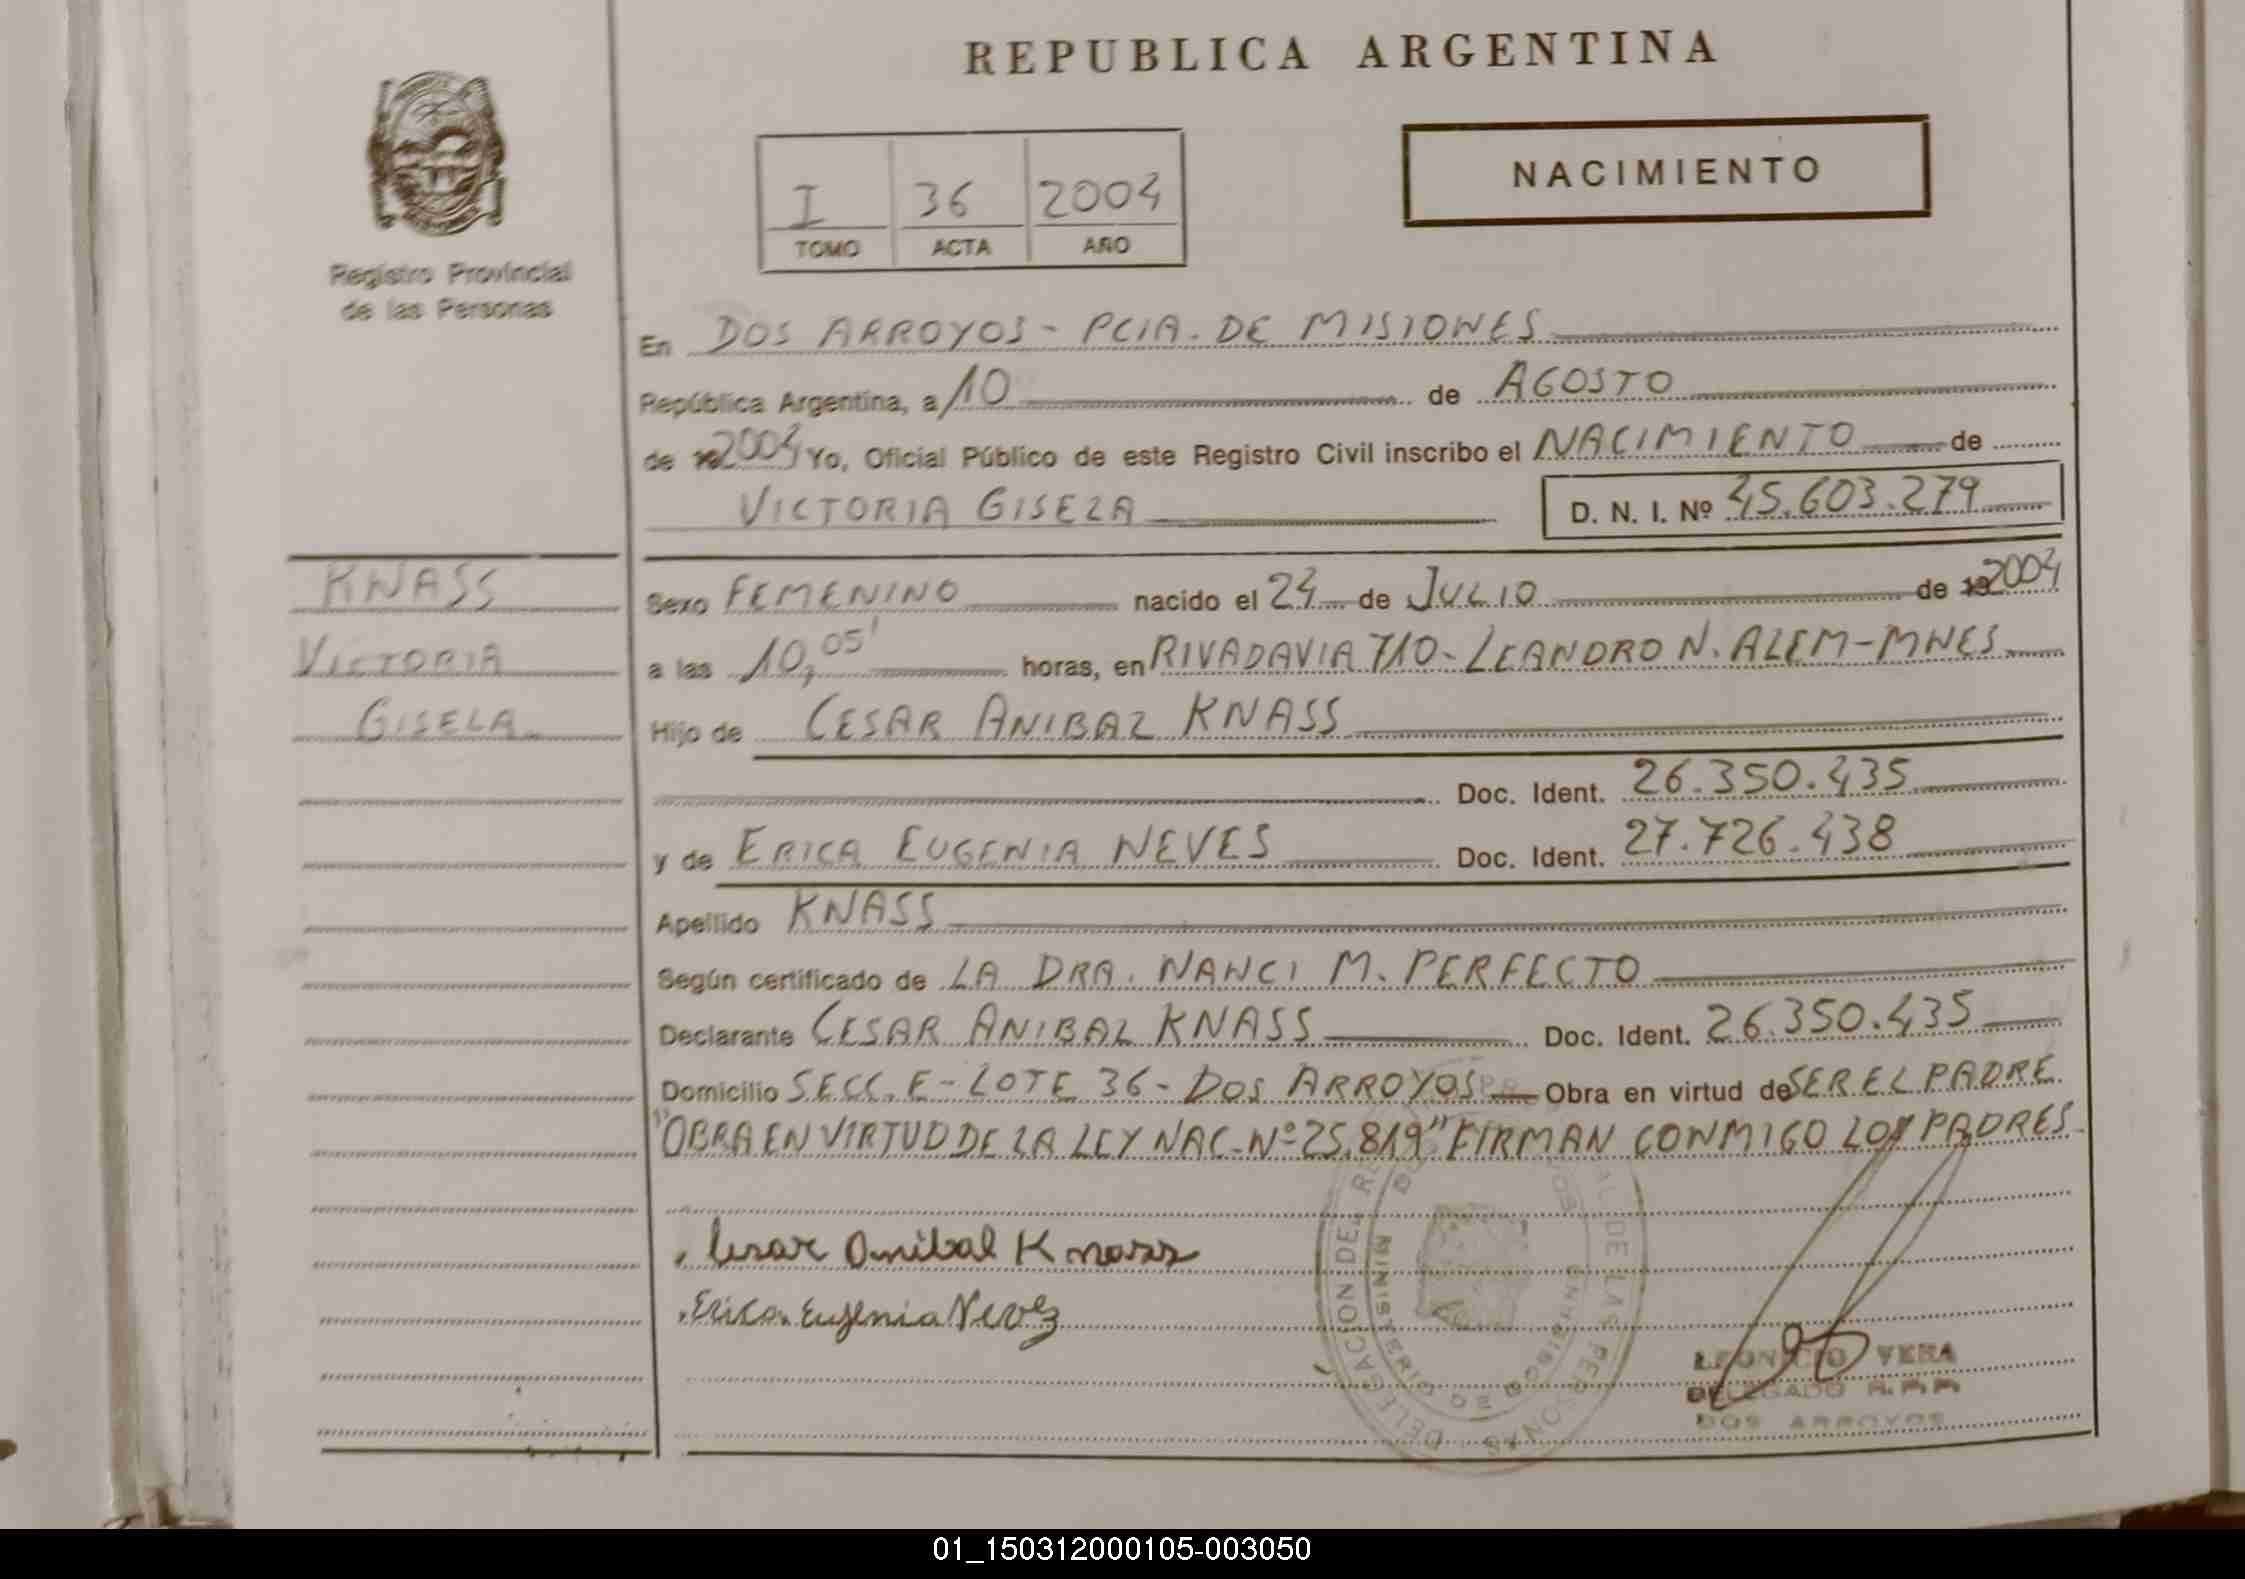 REPUBLICA ARGENTINA
Registro Provincial
de las Personas
NACIMIENTO
I 36 2004
TOMO ACTA AÑO
En DOS ARROYOS - PCIA. DE MISIONES
República Argentina, a 10 de AGOSTO
de 19 2004 Yo, Oficial Público de este Registro Civil inscribo el NACIMIENTO de
VICTORIA GISELA D. N. I. Nº 45.603.279
KNASS
VICTORIA
GISELA
Sexo FEMENINO nacido el 24 de JULIO de 19 2004
a las 10,05' horas, en RIVADAVIA 710 - LEANDRO N. ALEM - MNES
Hijo de CESAR ANIBAL KNASS
Doc. Ident. 26.350.435
y de ERICA EUGENIA NEVES Doc. Ident. 27.726.438
Apellido KNASS
Según certificado de LA DRA. NANCI M. PERFECTO
Declarante CESAR ANIBAL KNASS Doc. Ident. 26.350.435
Domicilio SECC. E - LOTE 36 - DOS ARROYOS Obra en virtud de SER EL PADRE
"OBRA EN VIRTUD DE LA LEY NAC. Nº 25.819" FIRMAN CONMIGO LOS PADRES
Cesar Anibal Knass
Erica Eugenia Nevez
DELEGACION DEL DE LAS PERSONAS
MINISTERIO DE GOBIERNO
LEONICIO VERA
DELEGADO R.P.P.
DOS ARROYOS
01_150312000105-003050